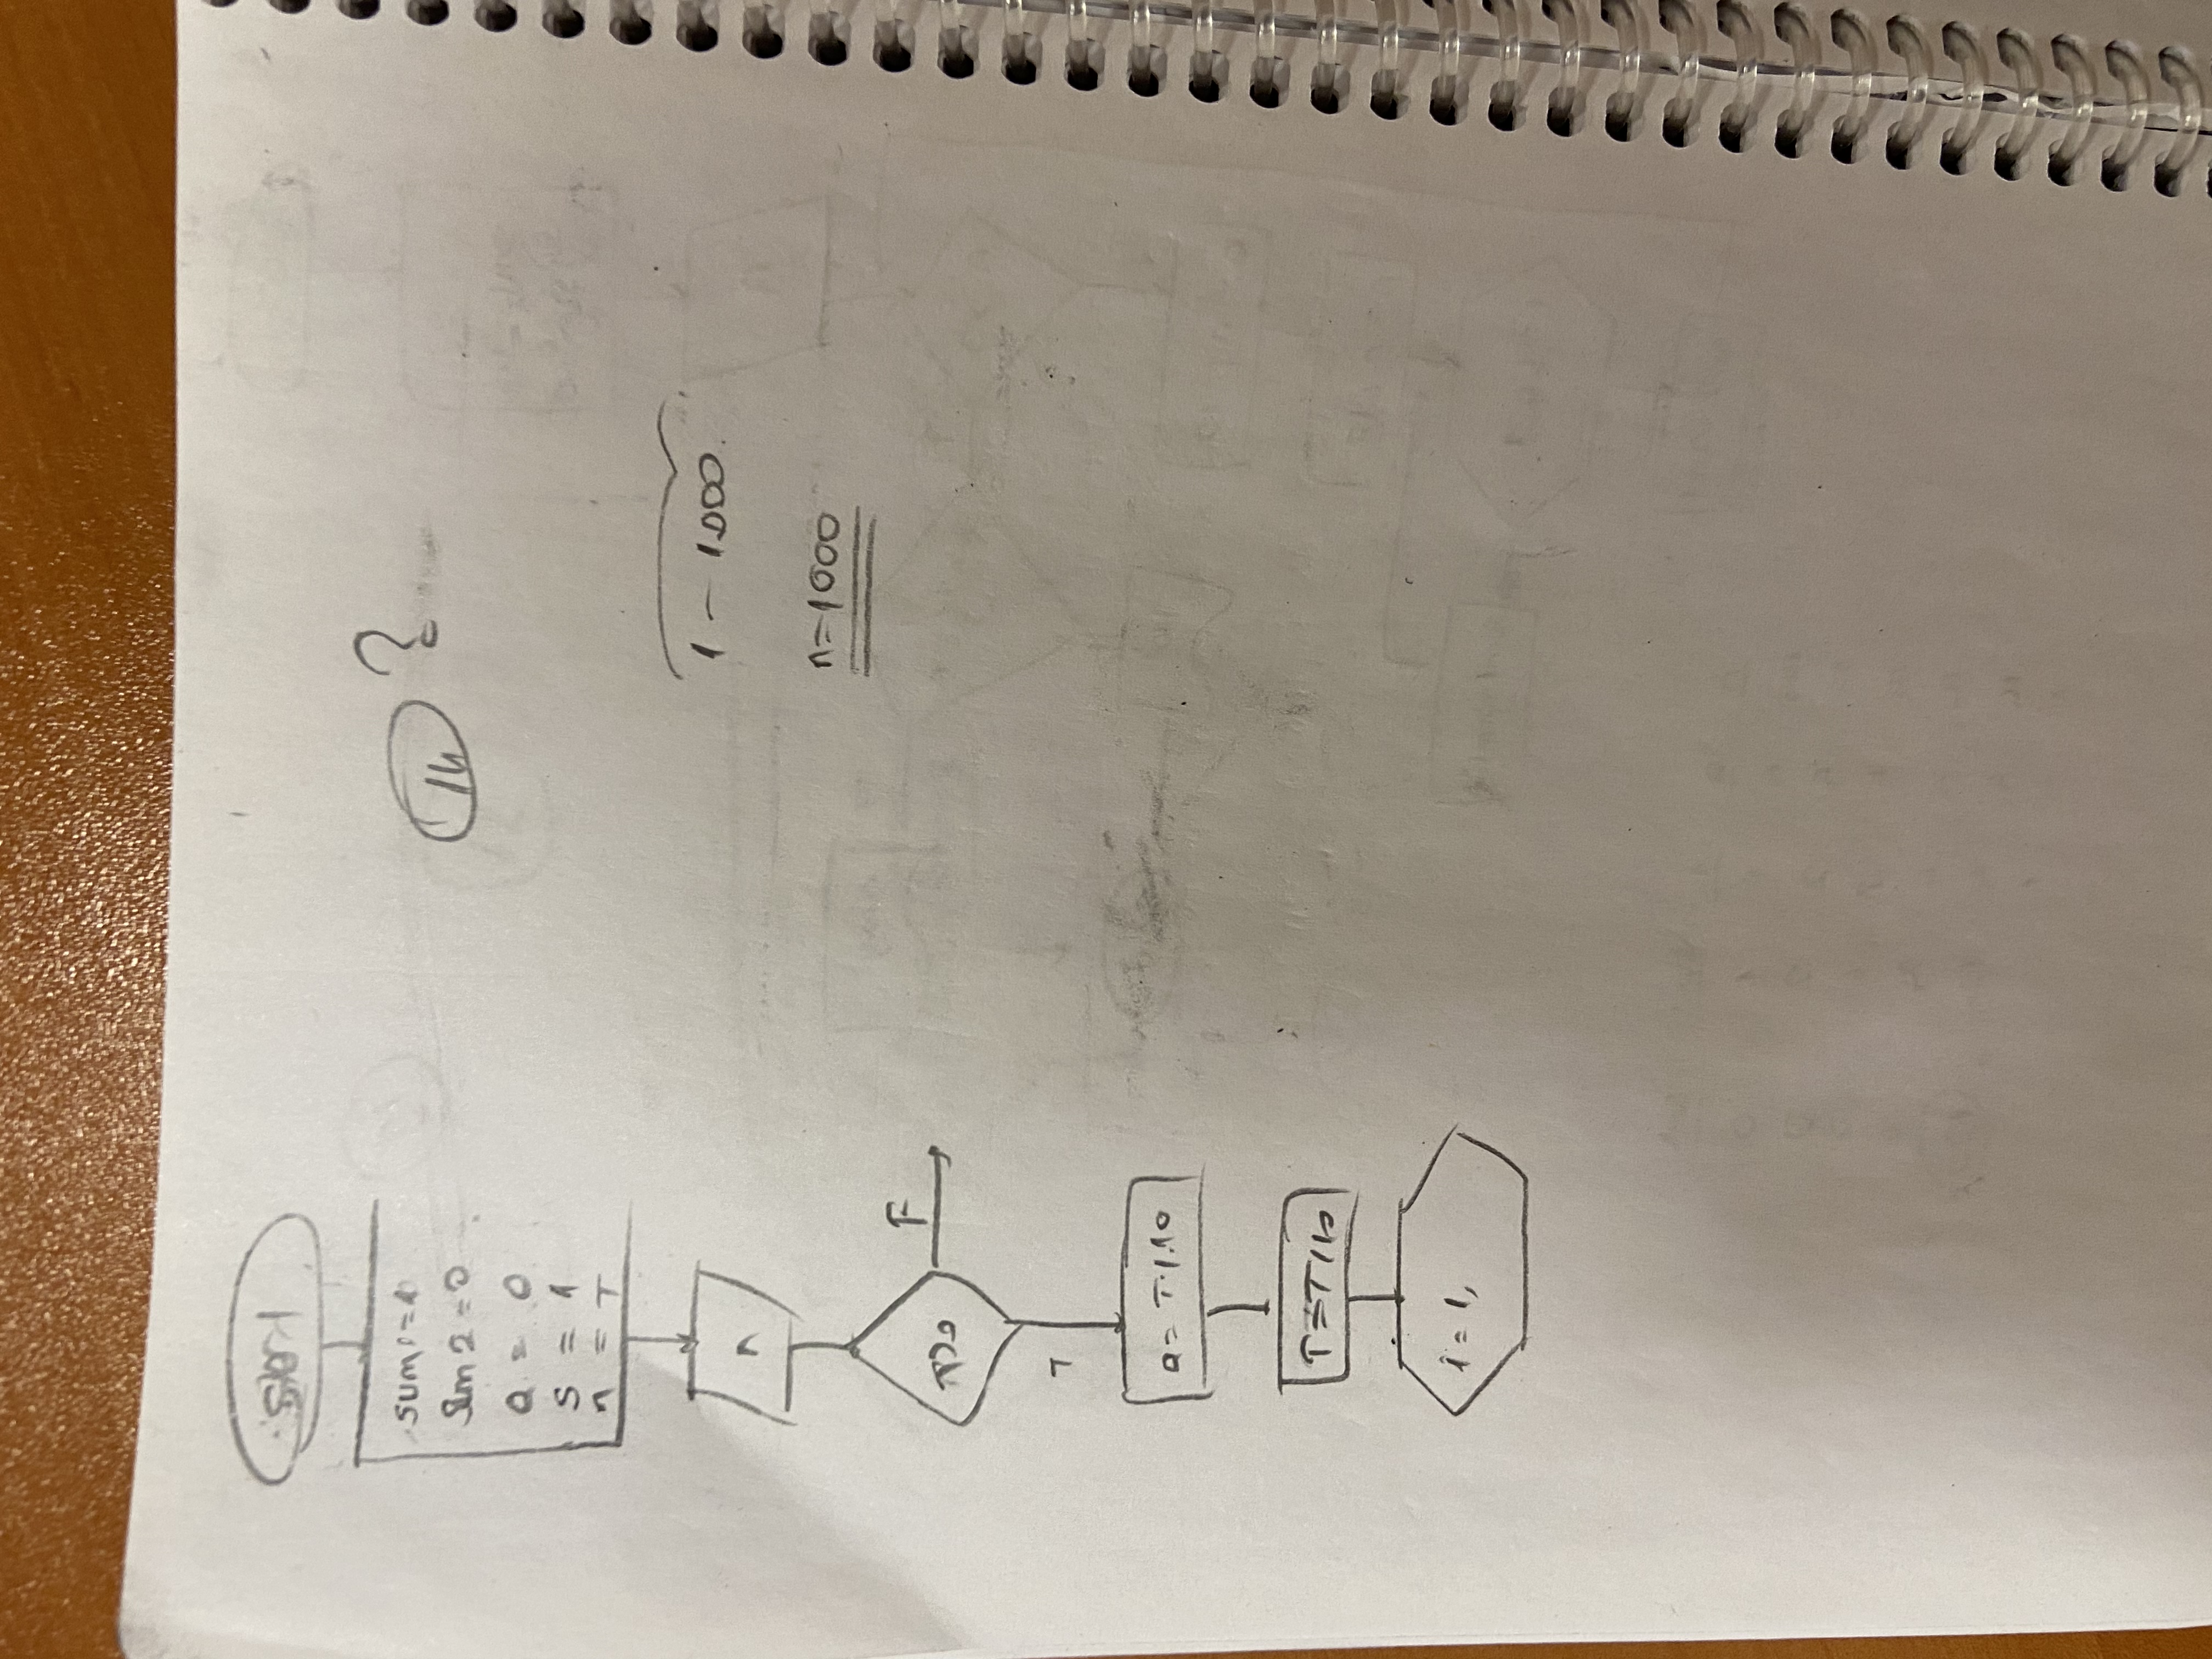 sum1=0
Sum2=0
a = 0
S = 1
n = T
n
T>0
F
T
a = T%10
T=T/10
i=1,
14
1 - 1000.
n=1000